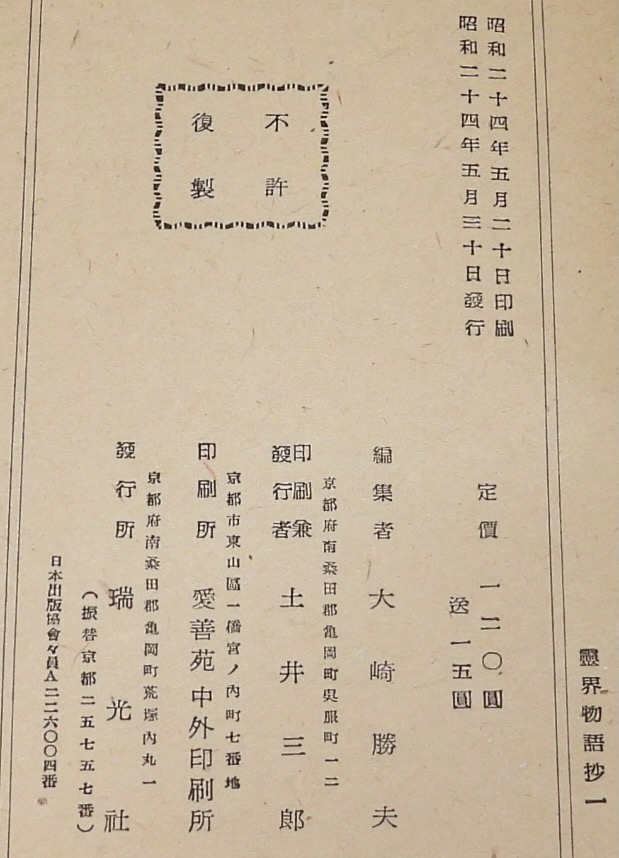 靈界物語抄一
昭和二十四年五月二十日印刷
昭和二十四年五月三十日發行
不許
復製
定價 一二〇圓
送 一五圓
編集者 大崎勝夫
京都府南桑田郡亀岡町呉服町一二
印刷兼
發行者 土井三郎
京都市東山區一橋宮ノ內町七番地
印刷所 愛善苑中外印刷所
京都府南桑田郡亀岡町荒塚內丸一
發行所 瑞光社
(振替京都二五七五七番)
日本出版協會々員A二二六〇〇四番